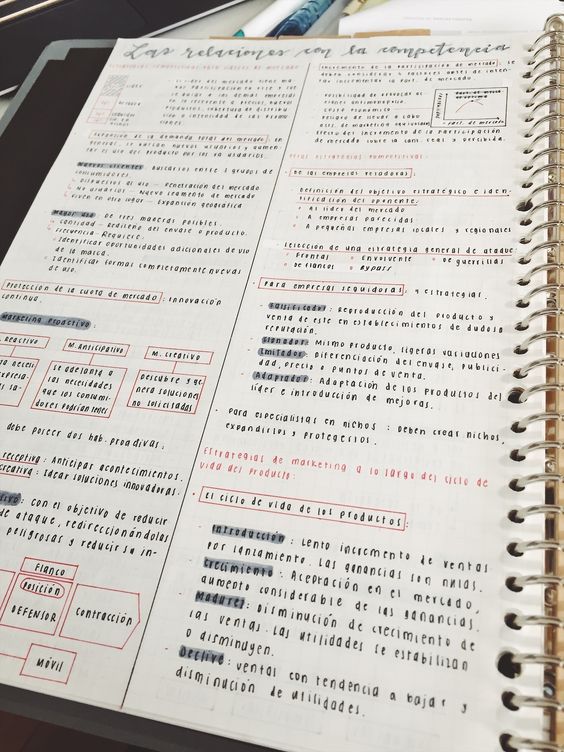 Las relaciones con la competencia
Expansión de la demanda total del mercado, en
general, se buscan nuevos usuarios y aumen-
tar el uso del producto por los ya usuarios.
Nuevos clientes Buscarlos entre 3 grupos de
consumidores.
Dispuestos al uso — Penetración del mercado
No usuarios — Nuevo segmento de mercado
Viven en otro lugar — Expansión geográfica
Mayor uso : De tres maneras posibles.
Cantidad - Rediseño del envase o producto.
Frecuencia - Requiere:
Identificar oportunidades adicionales de uso
de la marca.
Identificar formas completamente nuevas
de uso.
Protección de la cuota de mercado : innovación
continua.
Marketing Proactivo :
Reactivo
M. Anticipativo
M. creativo
Se adelanta a
las necesidades
que los consumi-
dores podrían tener
Descubre y ge
nera soluciones
no solicitadas
debe poseer dos hab. proactivas:
receptiva : Anticipar acontecimientos.
creativa : Idear soluciones innovadoras.
: Con el objetivo de reducir
de ataque, redireccionándolos
peligrosas y reducir su in-
Flanco
Posición
DEFENSOR
Contracción
MÓVIL
Incremento de la participación de mercado, se
deben considerar 4 factores antes de inten-
tar incrementar la part. de mercado.
Posibilidad de provocar ac-
ciones antimonopolio.
Costo económico
Peligro de llevar a cabo
act. de marketing equivocada
Efecto del incremento de la participación
de mercado sobre la cali. real y percibida.
Part. de mercado
Otras estrategias competitivas:
De las empresas retadoras
Definición del objetivo estratégico e iden-
tificación del oponente.
Al líder del mercado
A empresas parecidas
A pequeñas empresas locales y regionales
Selección de una estrategia general de ataque:
Frontal
Envolvente
De guerrillas
De flancos
Bypass
Para empresas seguidoras, 4 estrategias.
Falsificador : Reproducción del producto y
venta de este en establecimientos de dudosa
reputación.
Clonador: Mismo producto, ligeras variaciones
Imitador: diferenciación del envase, publici-
dad, precio o puntos de venta.
Adaptador : Adaptación de los productos del
líder e introducción de mejoras.
Para especialistas en nichos : Deben crear nichos,
expandirlos y protegerlos.
Estrategias de marketing a lo largo del ciclo de
vida del producto:
El ciclo de vida de los productos :
Introducción : Lento incremento de ventas
por lanzamiento. Las ganancias son nulas.
Crecimiento : Aceptación en el mercado,
aumento considerable de las ganancias.
Madurez: Disminución de crecimiento de
las ventas. Las utilidades se estabilizan
o disminuyen.
Declive : ventas con tendencia a bajar y
disminución de utilidades.